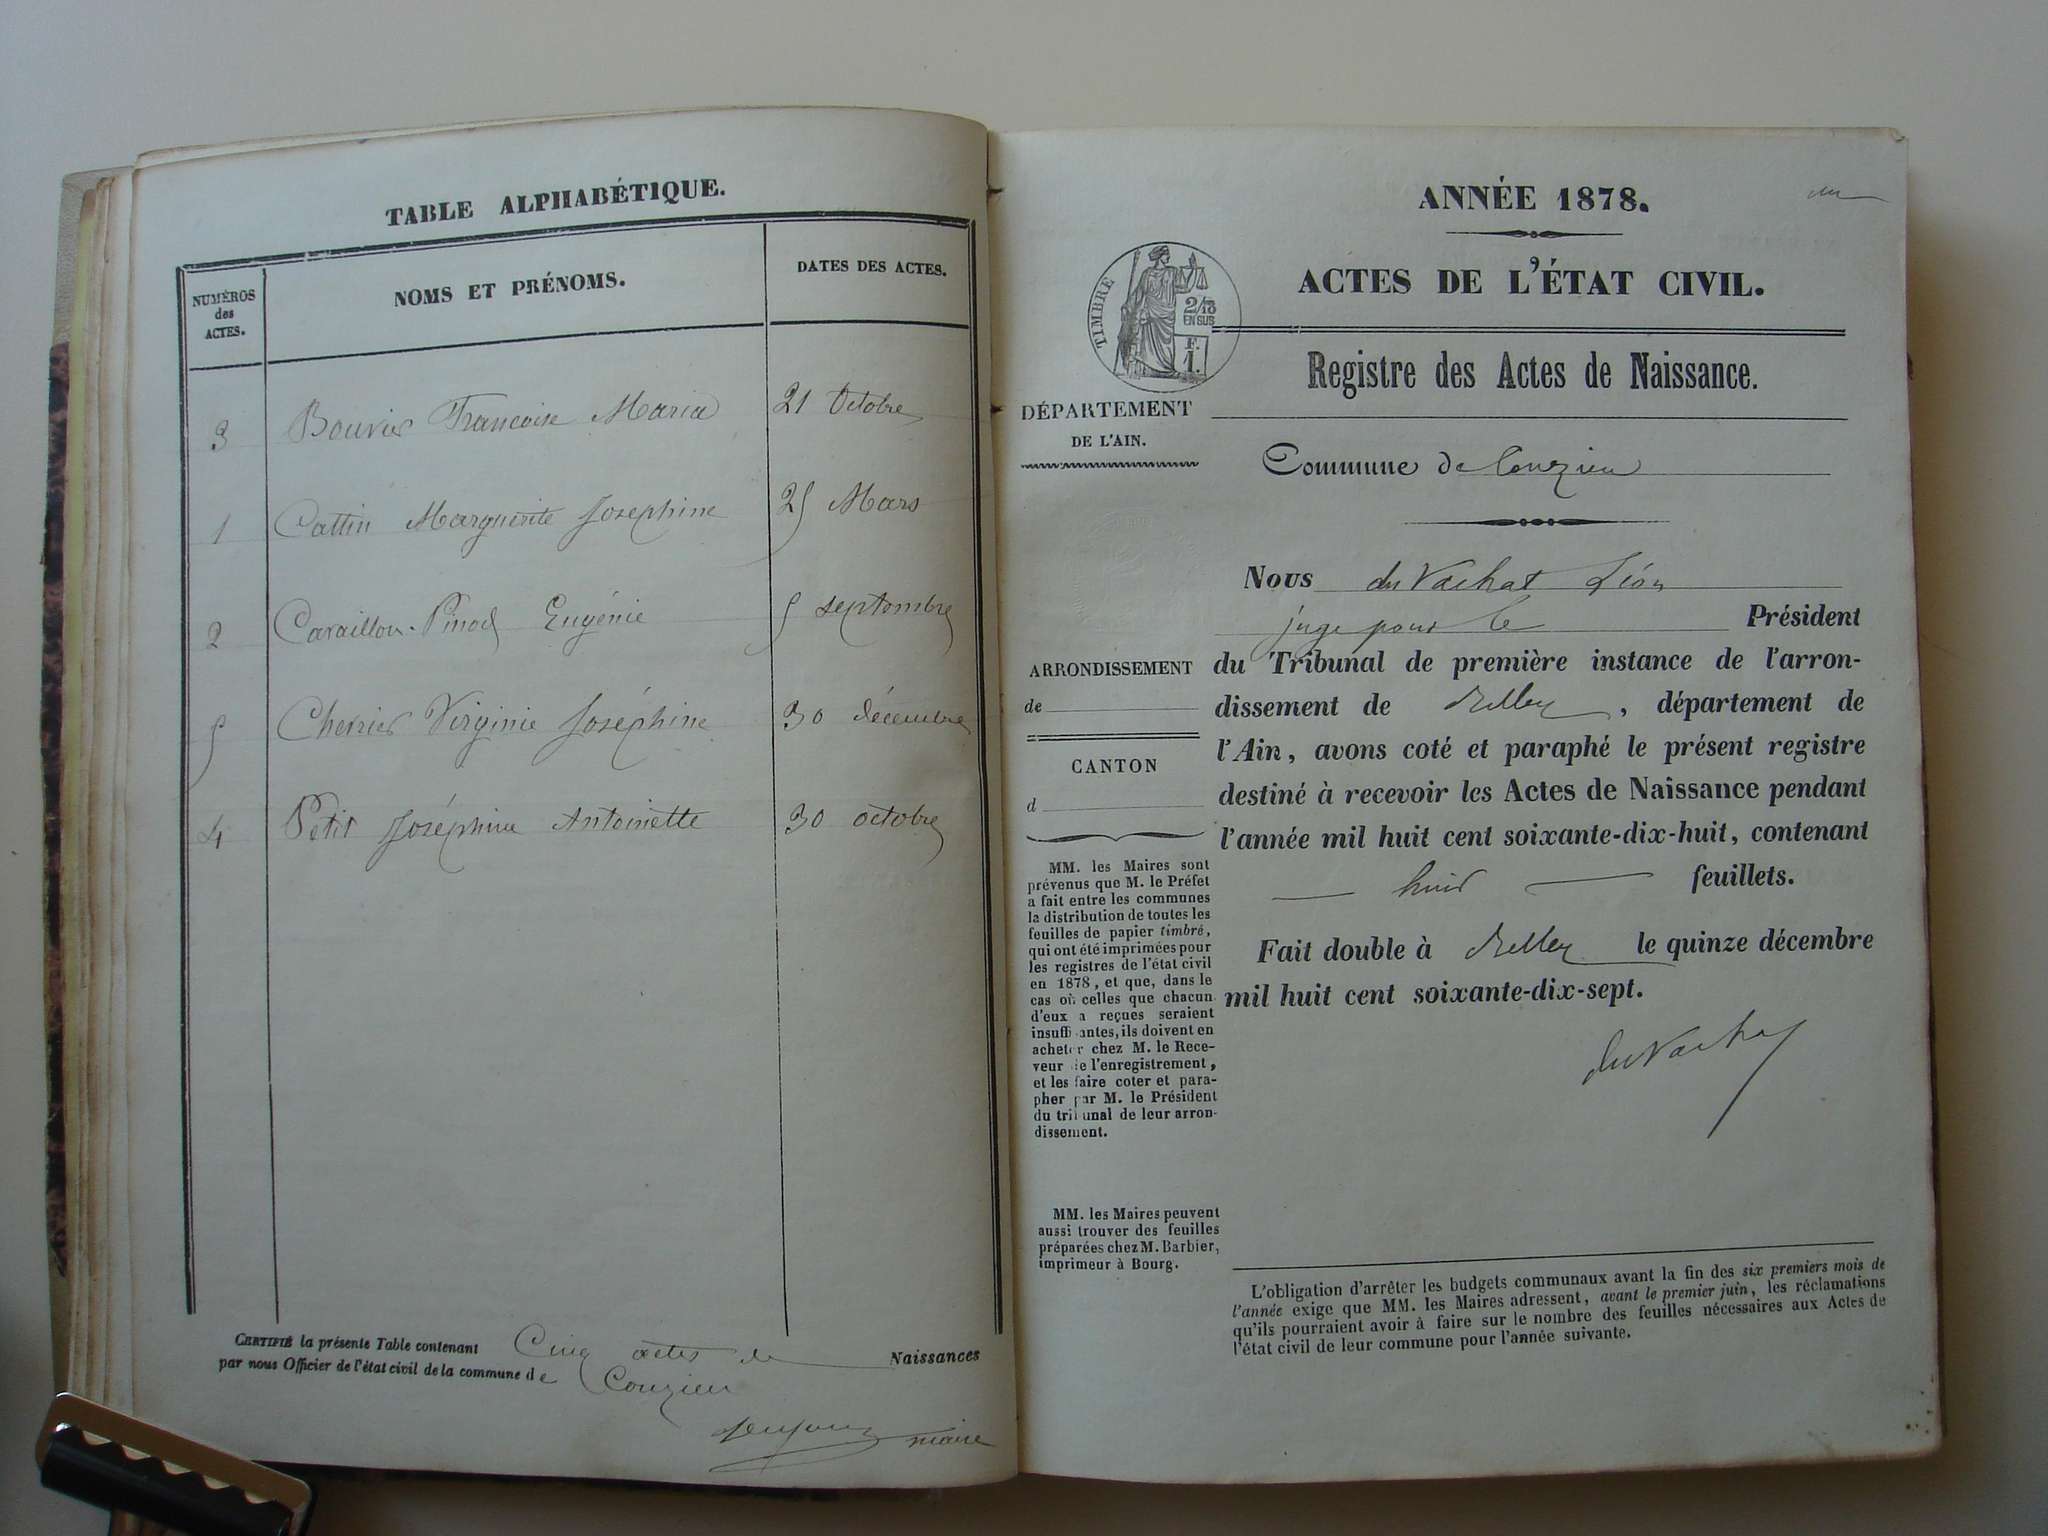 TABLE ALPHABÉTIQUE.
NUMÉROS
des
ACTES.
NOMS ET PRÉNOMS.
DATES DES ACTES.
3 Bouvier Françoise Maria 21 Octobre
1 Cattin Marguerite Josephine 25 Mars
2 Cavaillon-Pinod Eugénie 5 septembre
5 Cherrier Virginie Joséphine 30 décembre
4 Petit Joséphine Antoinette 30 octobre
CERTIFIÉ la présente Table contenant Cinq actes de Naissances
par nous Officier de l'état civil de la commune de Conzieu
maire
ANNÉE 1878.
ACTES DE L'ÉTAT CIVIL.
TIMBRE
2/10
EN SUS
F.
1.
Registre des Actes de Naissance.
DÉPARTEMENT
DE L'AIN.
Commune de Conzieu
Nous du Vachat Léon
juge pour le Président
du Tribunal de première instance de l'arron-
dissement de Belley, département de
l'Ain, avons coté et paraphé le présent registre
destiné à recevoir les Actes de Naissance pendant
l'année mil huit cent soixante-dix-huit, contenant
huit feuillets.
Fait double à Belley le quinze décembre
mil huit cent soixante-dix-sept.
du Vachat
ARRONDISSEMENT
de
CANTON
d
MM. les Maires sont
prévenus que M. le Préfet
a fait entre les communes
la distribution de toutes les
feuilles de papier timbré,
qui ont été imprimées pour
les registres de l'état civil
en 1878, et que, dans le
cas où celles que chacun
d'eux a reçues seraient
insuffisantes, ils doivent en
acheter chez M. le Rece-
veur de l'enregistrement,
et les faire coter et para-
pher par M. le Président
du tribunal de leur arron-
dissement.
MM. les Maires peuvent
aussi trouver des feuilles
préparées chez M. Barbier,
imprimeur à Bourg.
L'obligation d'arrêter les budgets communaux avant la fin des six premiers mois de
l'année exige que MM. les Maires adressent, avant le premier juin, les réclamations
qu'ils pourraient avoir à faire sur le nombre des feuilles nécessaires aux Actes de
l'état civil de leur commune pour l'année suivante.